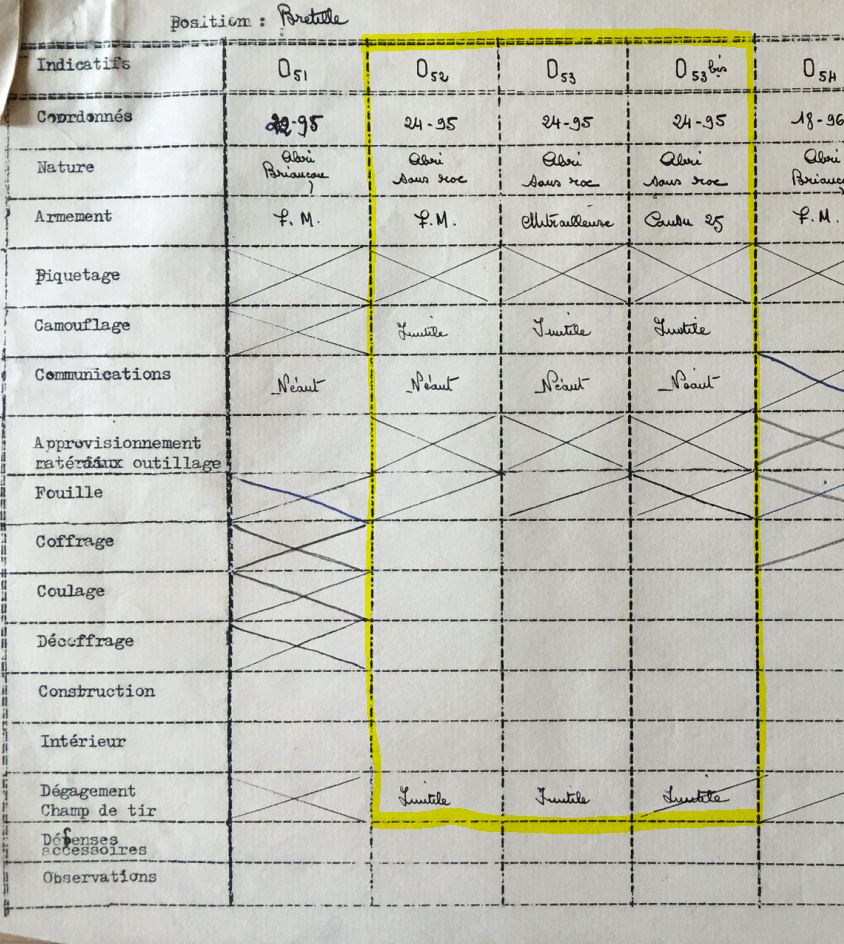 Position : Bretelle
Indicatifs O51 O52 O53 O53 bis O54
Coordonnés 22-95 24-95 24-95 24-95 18-96
Nature Abri Briançon Abri sous roc Abri sous roc Abri sous roc Abri Brianç
Armement F.M. F.M. Mitrailleuse Canon 25 F.M.
Piquetage
Camouflage Inutile Inutile Inutile
Communications Néant Néant Néant Néant
Approvisionnement
matériaux outillage
Fouille
Coffrage
Coulage
Décoffrage
Construction
Intérieur
Dégagement
Champ de tir Inutile Inutile Inutile
Défenses
accessoires
Observations